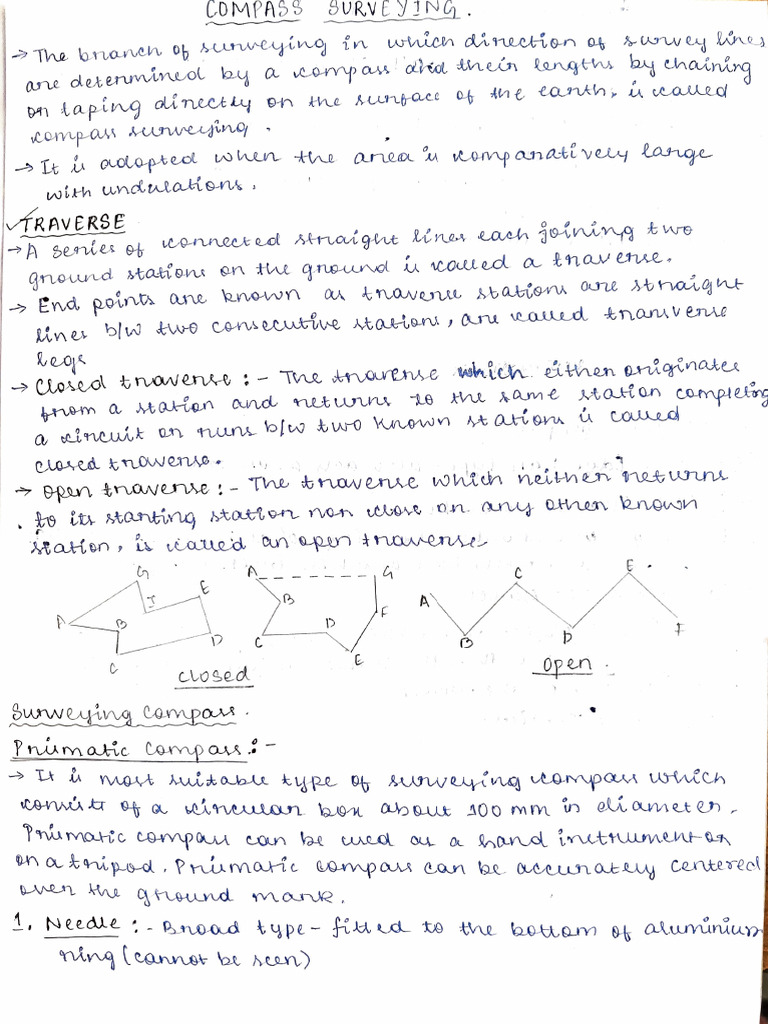 COMPASS SURVEYING.
→ The branch of surveying in which direction of survey lines
are determined by a compass and their lengths by chaining
or taping directly on the surface of the earth, is called
compass surveying.
→ It is adopted when the area is comparatively large
with undulations.
✓TRAVERSE
→ A series of connected straight lines each joining two
ground stations on the ground is called a traverse.
→ End points are known as traverse stations are straight
lines b/w two consecutive stations, are called transverse
legs
→ Closed traverse :- The traverse which either originates
from a station and returns to the same station completing
a circuit or runs b/w two known stations is called
closed traverse.
→ open traverse :- The traverse which neither returns
to its starting station nor close on any other known
station, is called an open traverse
A B C D E I G
A B C D E F G
A B C D E F
closed
open.
Surveying Compass.
Prismatic Compass :-
→ It is most suitable type of surveying compass which
consist of a circular box about 100 mm in diameter.
Prismatic compass can be used as a hand instrument or
on a tripod. Prismatic compass can be accurately centered
over the ground mark.
1. Needle :- Broad type - fitted to the bottom of aluminium
ring (cannot be seen)